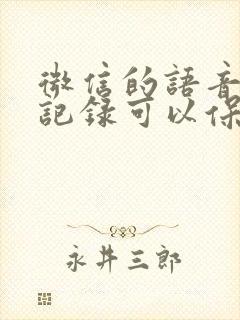 微信的語音
記録可以保
永井三郎